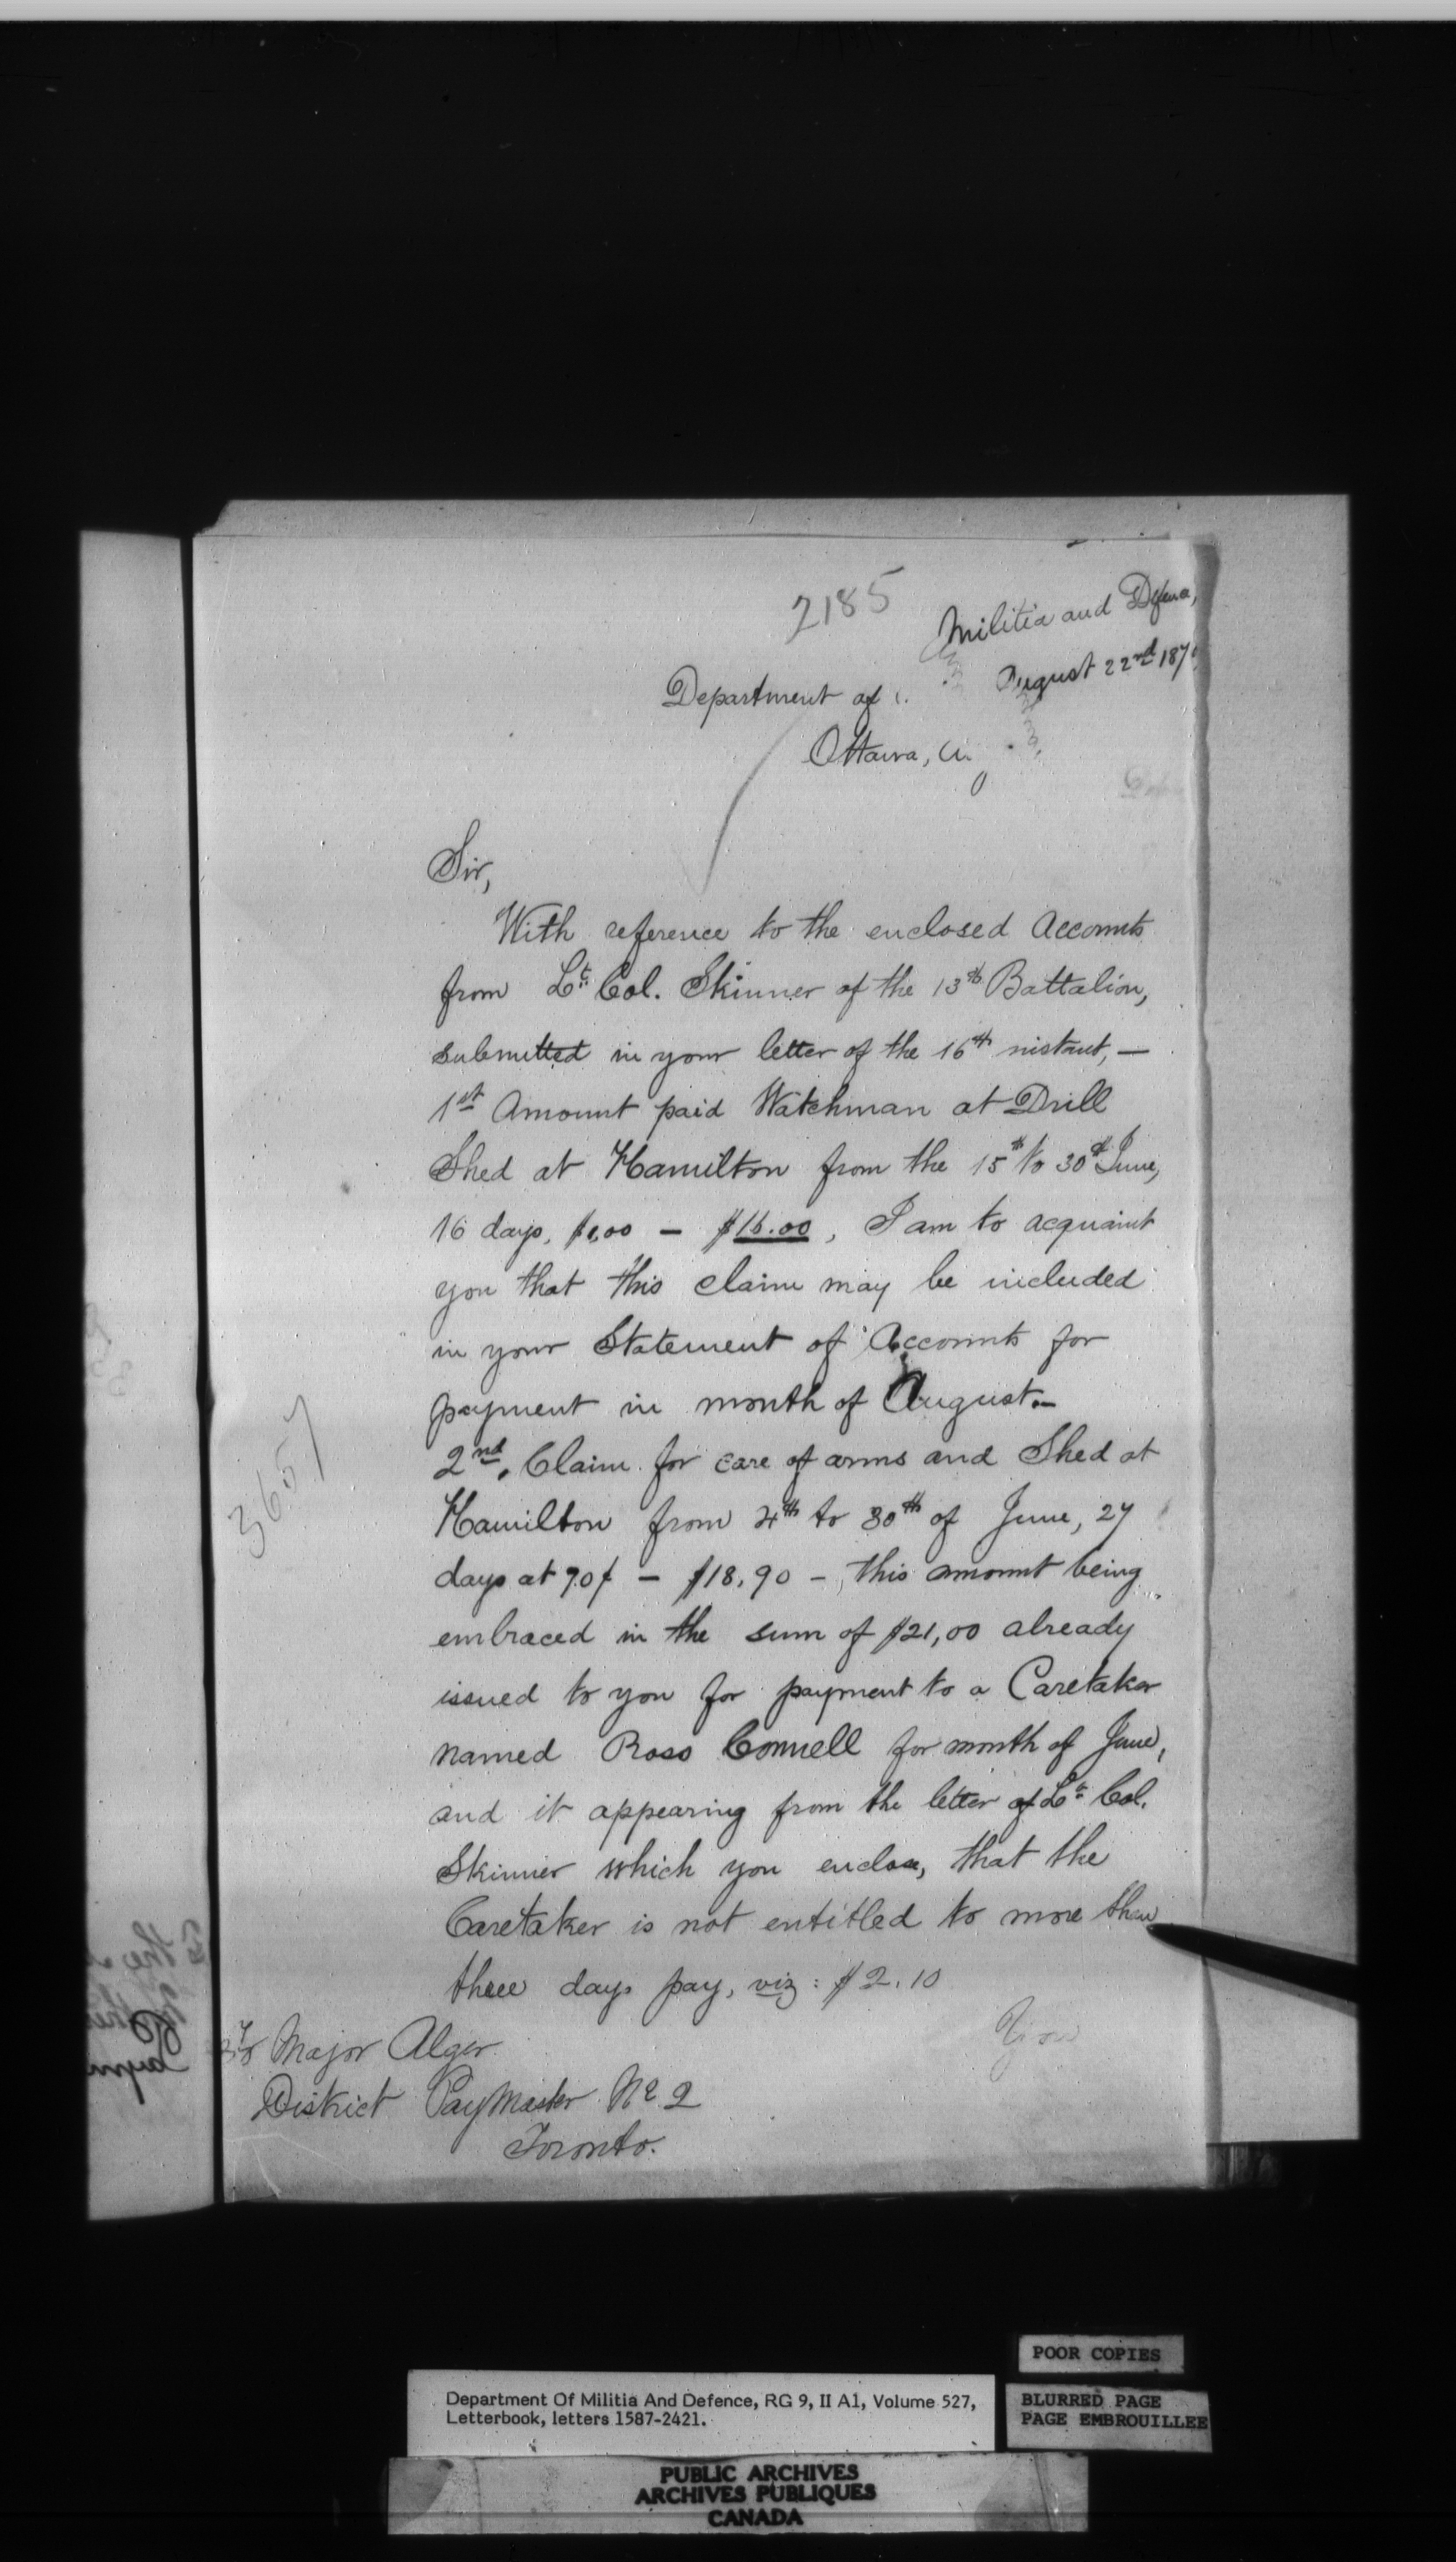 2185
Militia and Defence,
Department of
August 22nd 187
Ottawa,
Sir,
With reference to the enclosed Accounts
from Lt. Col. Skinner of the 13th Battalion,
submitted in your letter of the 16th instant, —
1st Amount paid Watchman at Drill
Shed at Hamilton from the 15th to 30th June,
16 days, $1,00 — $16.00, I am to acquaint
you that this claim may be included
in your Statement of Accounts for
payment in month of August.—
2nd. Claim for care of arms and Shed at
3657
Hamilton from 4th to 30th of June, 27
days at 70¢ — $18,90 —, this amount being
embraced in the sum of $21,00 already
issued to you for payment to a Caretaker
named Ross Connell for month of June,
and it appearing from the letter of Lt. Col.
Skinner which you enclose, that the
Caretaker is not entitled to more than
three days pay, viz: $2.10
You
Major Alger
District PayMaster No 2
Toronto.
POOR COPIES
Department Of Militia And Defence, RG 9, II A1, Volume 527,
Letterbook, letters 1587-2421.
BLURRED PAGE
PAGE EMBROUILLEE
PUBLIC ARCHIVES
ARCHIVES PUBLIQUES
CANADA